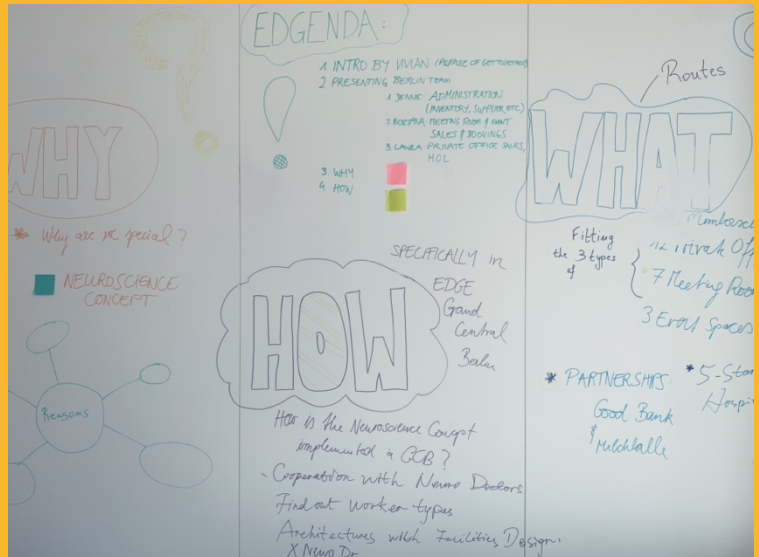 WHY
* Why are we special?
NEUROSCIENCE
CONCEPT
Reasons
EDGENDA:
1 INTRO BY VIVIAN (PURPOSE OF GET TOGETHER)
2 PRESENTING BERLIN TEAM
ADMINISTRATION
(INVENTORY, SUPPLIER, ETC)
MEETING ROOM & EVENT
SALES & BOOKINGS
3. LAURA: PRIVATE OFFICE SALES,
HOL
3. WHY
4 HOW
SPECIFICALLY in
EDGE
Grand
Central
Berlin
HOW
How is the Neuroscience Concept
implemented in GCB?
- Cooperation with Neuro Doctors
Find out worker types
Architectures with Facilities Design.
X Neuro Dr.
Routes
WHAT
Fitting
the 3 types
of
7 Meeting Roo
3 Event Spaces
* PARTNERSHIPS
Good Bank
&
Milchhalle
* 5-Star
Hospi